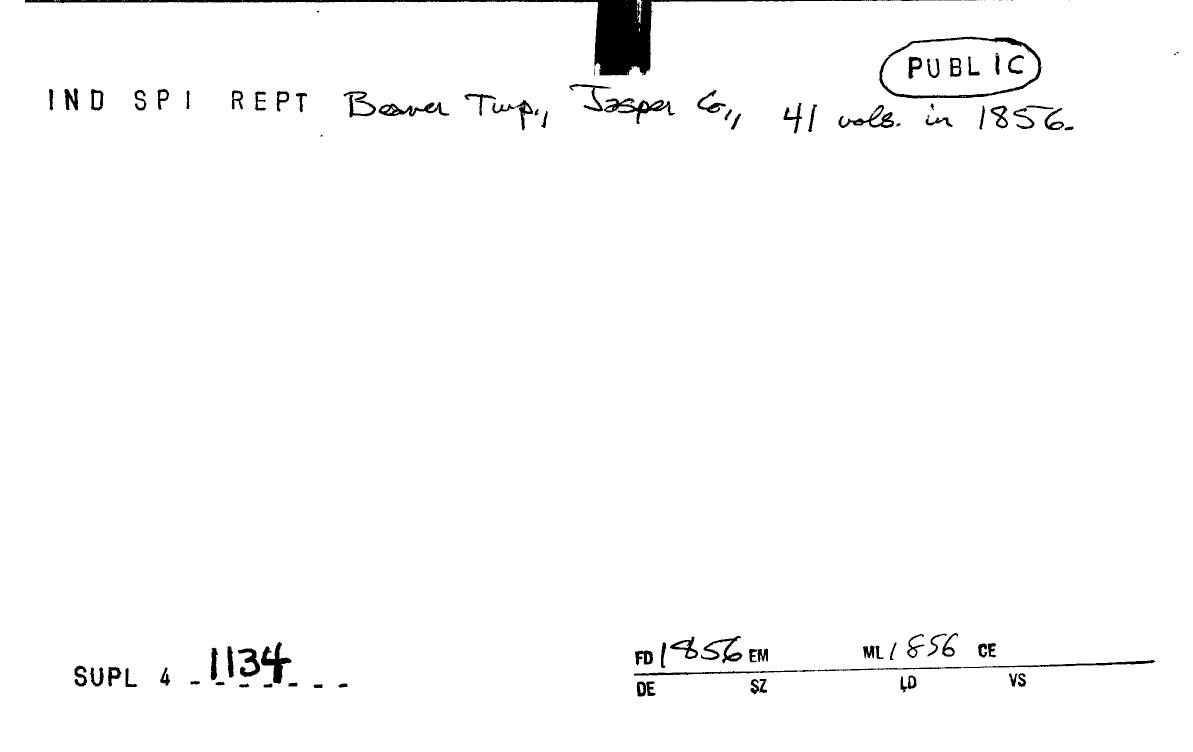 PUBLIC
IND SPI REPT Beaver Twp., Jasper Co., 41 vols. in 1856.
SUPL 4 - 1134 - - -
FD 1856 EM ML 1856 CE
DE SZ LD VS